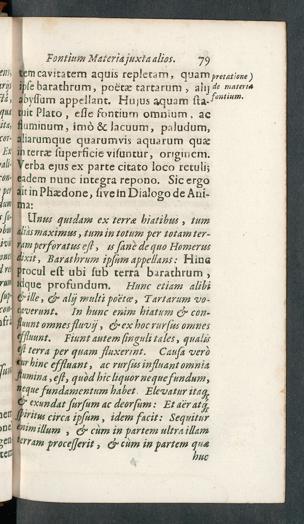 Fontium Materia juxta alios. 79
tem cavitatem aquis repletam, quam
ipse barathrum, poëtæ tartarum, alij
abyssum appellant. Hujus aquam sta-
tuit Plato, esse fontium omnium, ac
fluminum, imò & lacuum, paludum,
aliarumque quarumvis aquarum quæ
in terræ superficie visuntur, originem.
Verba ejus ex parte citato loco retuli;
eadem nunc integra repono. Sic ergo
ait in Phædone, sive in Dialogo de Ani-
ma:
pretatione)
de materia
fontium.
Unus quidam ex terræ hiatibus, tum
aliàs maximus, tum in totum per totam ter-
ram perforatus est, is sanè de quo Homerus
dixit, Barathrum ipsum appellans: Hinc
procul est ubi sub terra barathrum,
idque profundum. Hunc etiam alibi
& ille, & alij multi poëtæ, Tartarum vo-
caverunt. In hunc enim hiatum & con-
fluunt omnes fluvij, & ex hoc rursus omnes
effluunt. Fiunt autem singuli tales, qualis
est terra per quam fluxerint. Causa verò
cur hinc effluant, ac rursus influant omnia
flumina, est, quòd hic liquor neque fundum,
neque fundamentum habet. Elevatur itaq;
& exundat sursum ac deorsum: Et aër atq;
spiritus circa ipsum, idem facit: Sequitur
enim illum, & cùm in partem ultra illam
terram processerit, & cùm in partem quæ
huc